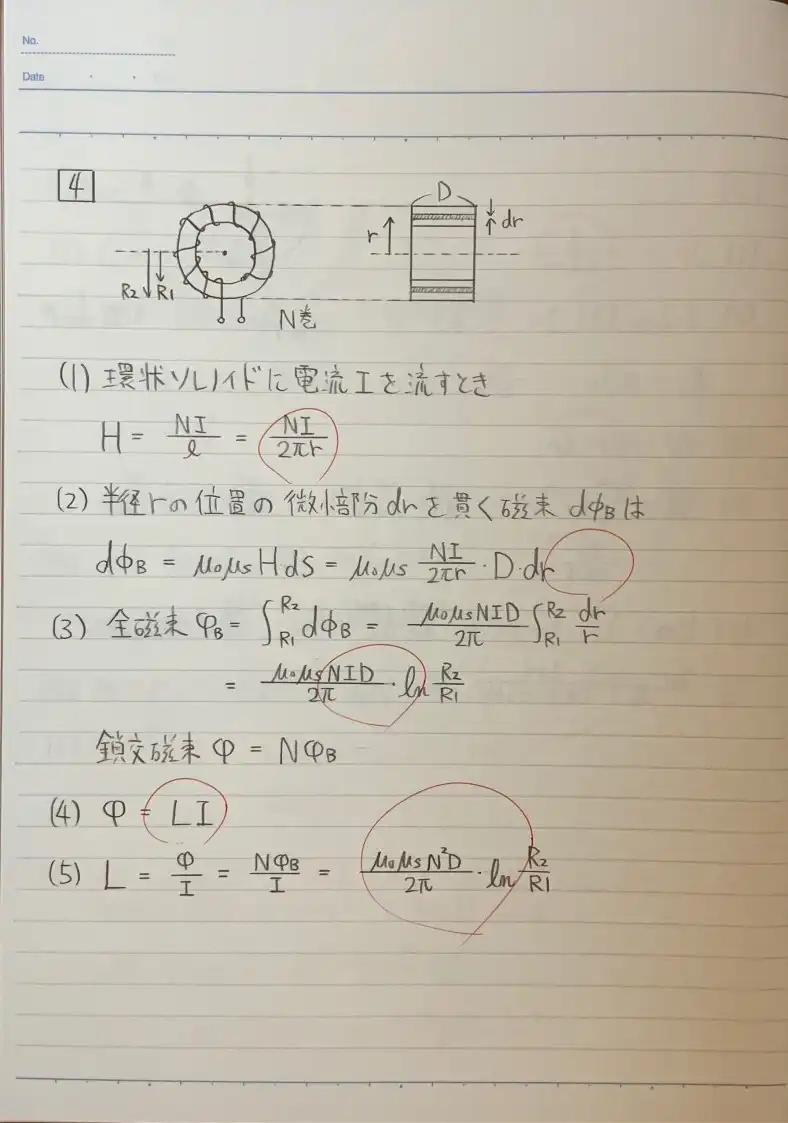 No.
Date
4
D
dr
r
R2 R1
N巻
(1) 環状ソレノイドに電流Iを流すとき
H = NI/l = NI/2πr
(2) 半径rの位置の微小部分drを貫く磁束 dφBは
dφB = μ0μsHdS = μ0μs NI/2πr · D·dr
(3) 全磁束 φB = ∫R1R2 dφB = μ0μsNID/2π ∫R1R2 dr/r
= μ0μsNID/2π · ln R2/R1
鎖交磁束 φ = NφB
(4) φ = LI
(5) L = φ/I = NφB/I = μ0μsN²D/2π · ln R2/R1